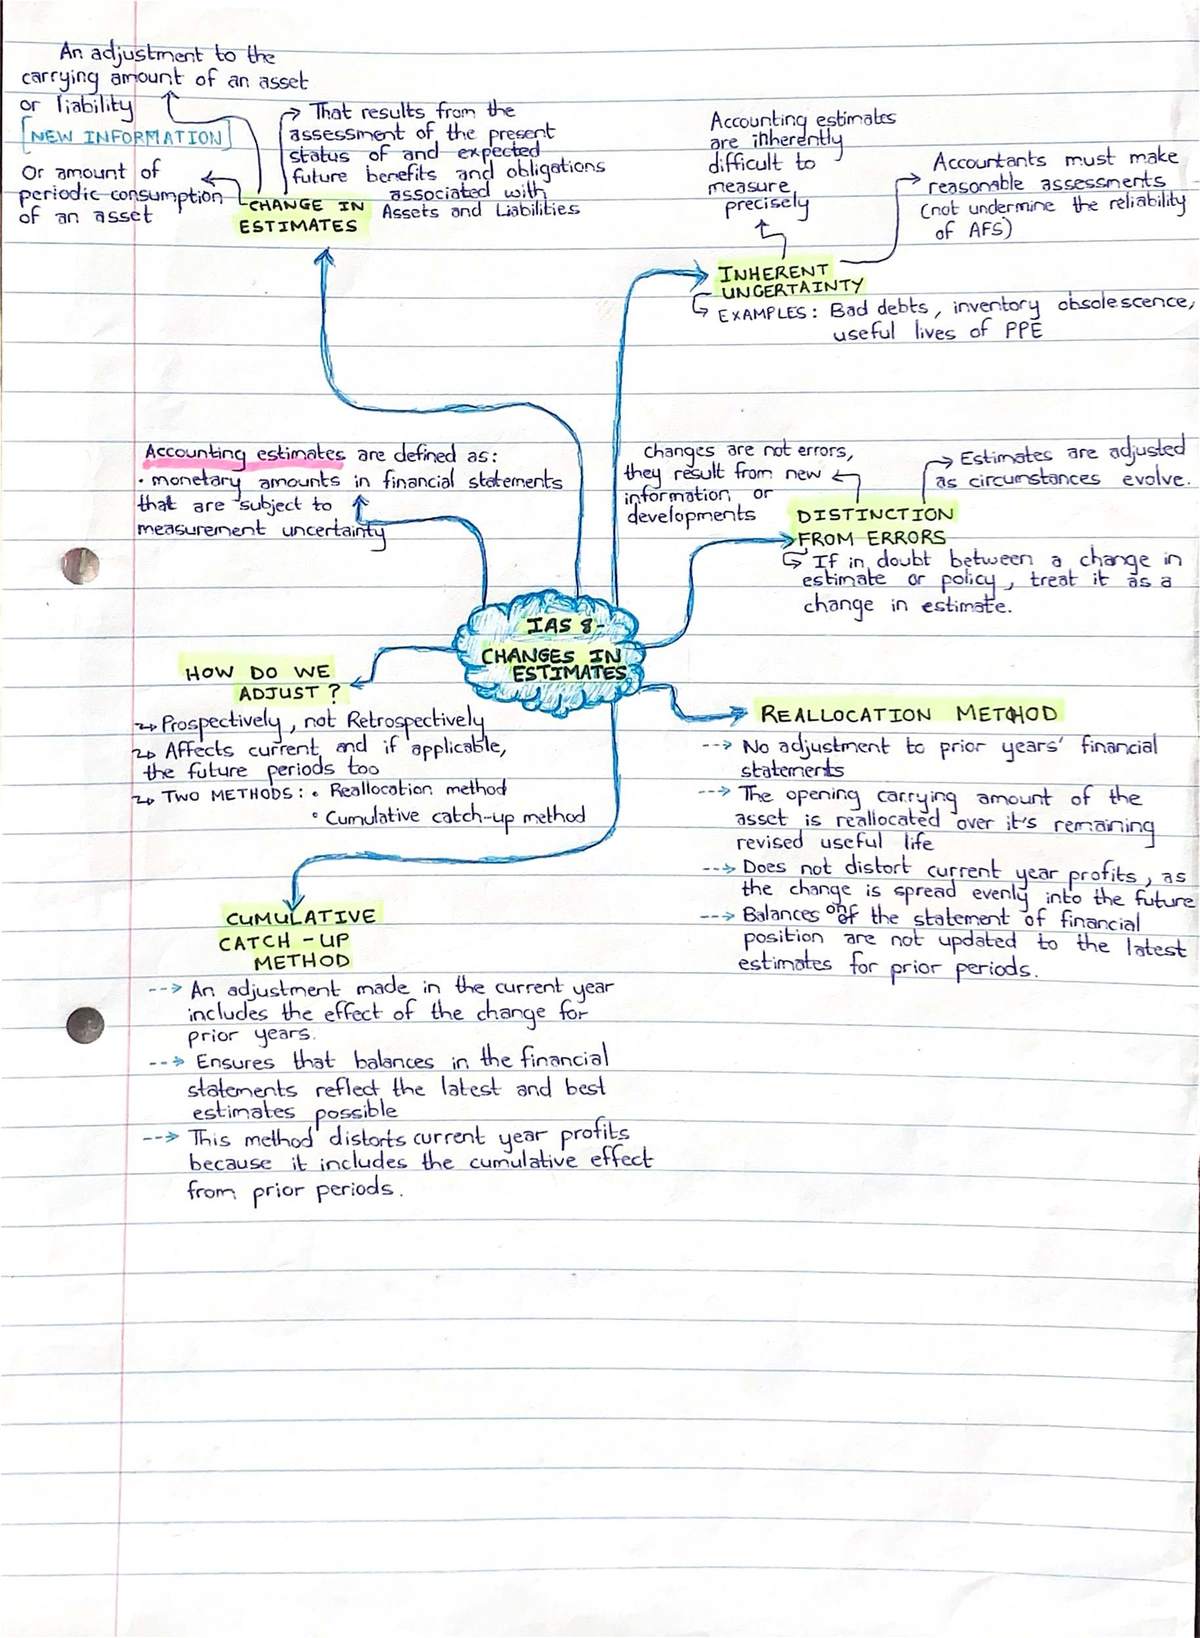 An adjustment to the
carrying amount of an asset
or liability
[NEW INFORMATION]
Or amount of
periodic consumption
of an asset
That results from the
assessment of the present
status of and expected
future benefits and obligations
associated with
Assets and Liabilities
CHANGE IN
ESTIMATES
Accounting estimates
are inherently
difficult to
measure
precisely
Accountants must make
reasonable assessments
(not undermine the reliability
of AFS)
INHERENT
UNCERTAINTY
EXAMPLES: Bad debts, inventory obsolescence,
useful lives of PPE
Accounting estimates are defined as:
• monetary amounts in financial statements
that are subject to
measurement uncertainty
changes are not errors,
they result from new
information or
developments
Estimates are adjusted
as circumstances evolve.
DISTINCTION
FROM ERRORS
If in doubt between a change in
estimate or policy, treat it as a
change in estimate.
IAS 8-
CHANGES IN
ESTIMATES
HOW DO WE
ADJUST?
Prospectively, not Retrospectively
Affects current, and if applicable,
the future periods too
TWO METHODS: • Reallocation method
• Cumulative catch-up method
REALLOCATION METHOD
--> No adjustment to prior years' financial
statements
--> The opening carrying amount of the
asset is reallocated over it's remaining
revised useful life
--> Does not distort current year profits, as
the change is spread evenly into the future
--> Balances on the statement of financial
position are not updated to the latest
estimates for prior periods.
CUMULATIVE
CATCH-UP
METHOD
--> An adjustment made in the current year
includes the effect of the change for
prior years.
--> Ensures that balances in the financial
statements reflect the latest and best
estimates possible
--> This method distorts current year profits
because it includes the cumulative effect
from prior periods.